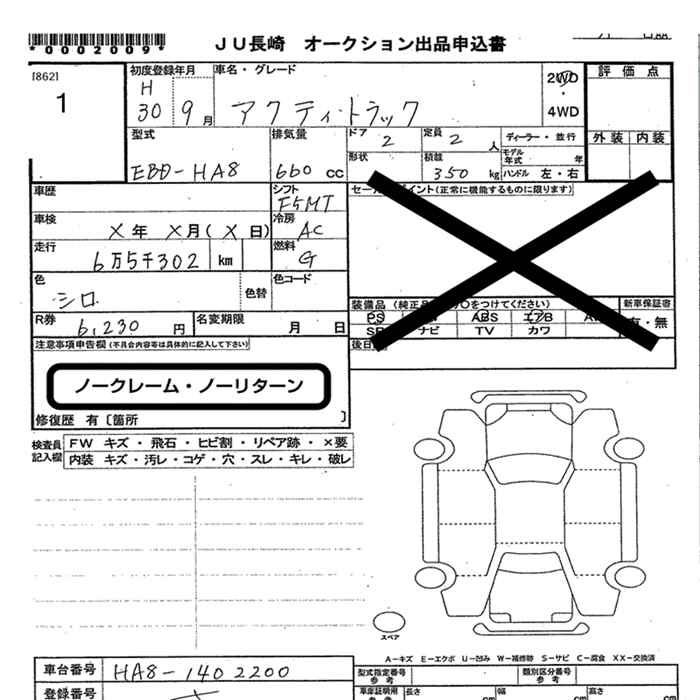 *0002009*
JU長崎 オークション出品申込書
[862]
1
初度登録年月 車名・グレード
H
30 9月 アクティトラック
2WD
・
4WD
評価点
外装 内装
型式 排気量 ドア 2 定員 2人 ディーラー・並行
モデル年式 年
EBD-HA8 660cc 形状 積載 350kg ハンドル 左・右
車歴 シフト F5MT
セールスポイント(正常に機能するものに限ります)
車検 X年 X月(X日) 冷房 AC
走行 6万5千302 km 燃料 G
色 シロ 色替 色コード
装備品
つけてください)
新車保証書
有・無
PS ABS エアB
ナビ TV カワ
R券 6,230円 名変期限 月 日
後日
注意事項申告欄(不具合内容等は具体的に記入して下さい)
ノークレーム・ノーリターン
修復歴 有〔箇所 〕
検査員記入欄 FW キズ・飛石・ヒビ割・リペア跡・×要
内装 キズ・汚レ・コゲ・穴・スレ・キレ・破レ
スペア
A-キズ E-エクボ U-凹み W-補修跡 S-サビ C-腐食 XX-交換済
車台番号 HA8-1402200
型式指定番号 参考 類別区分番号 参考
登録番号
車庫証明用 参考 長さ cm 幅 cm 高さ cm